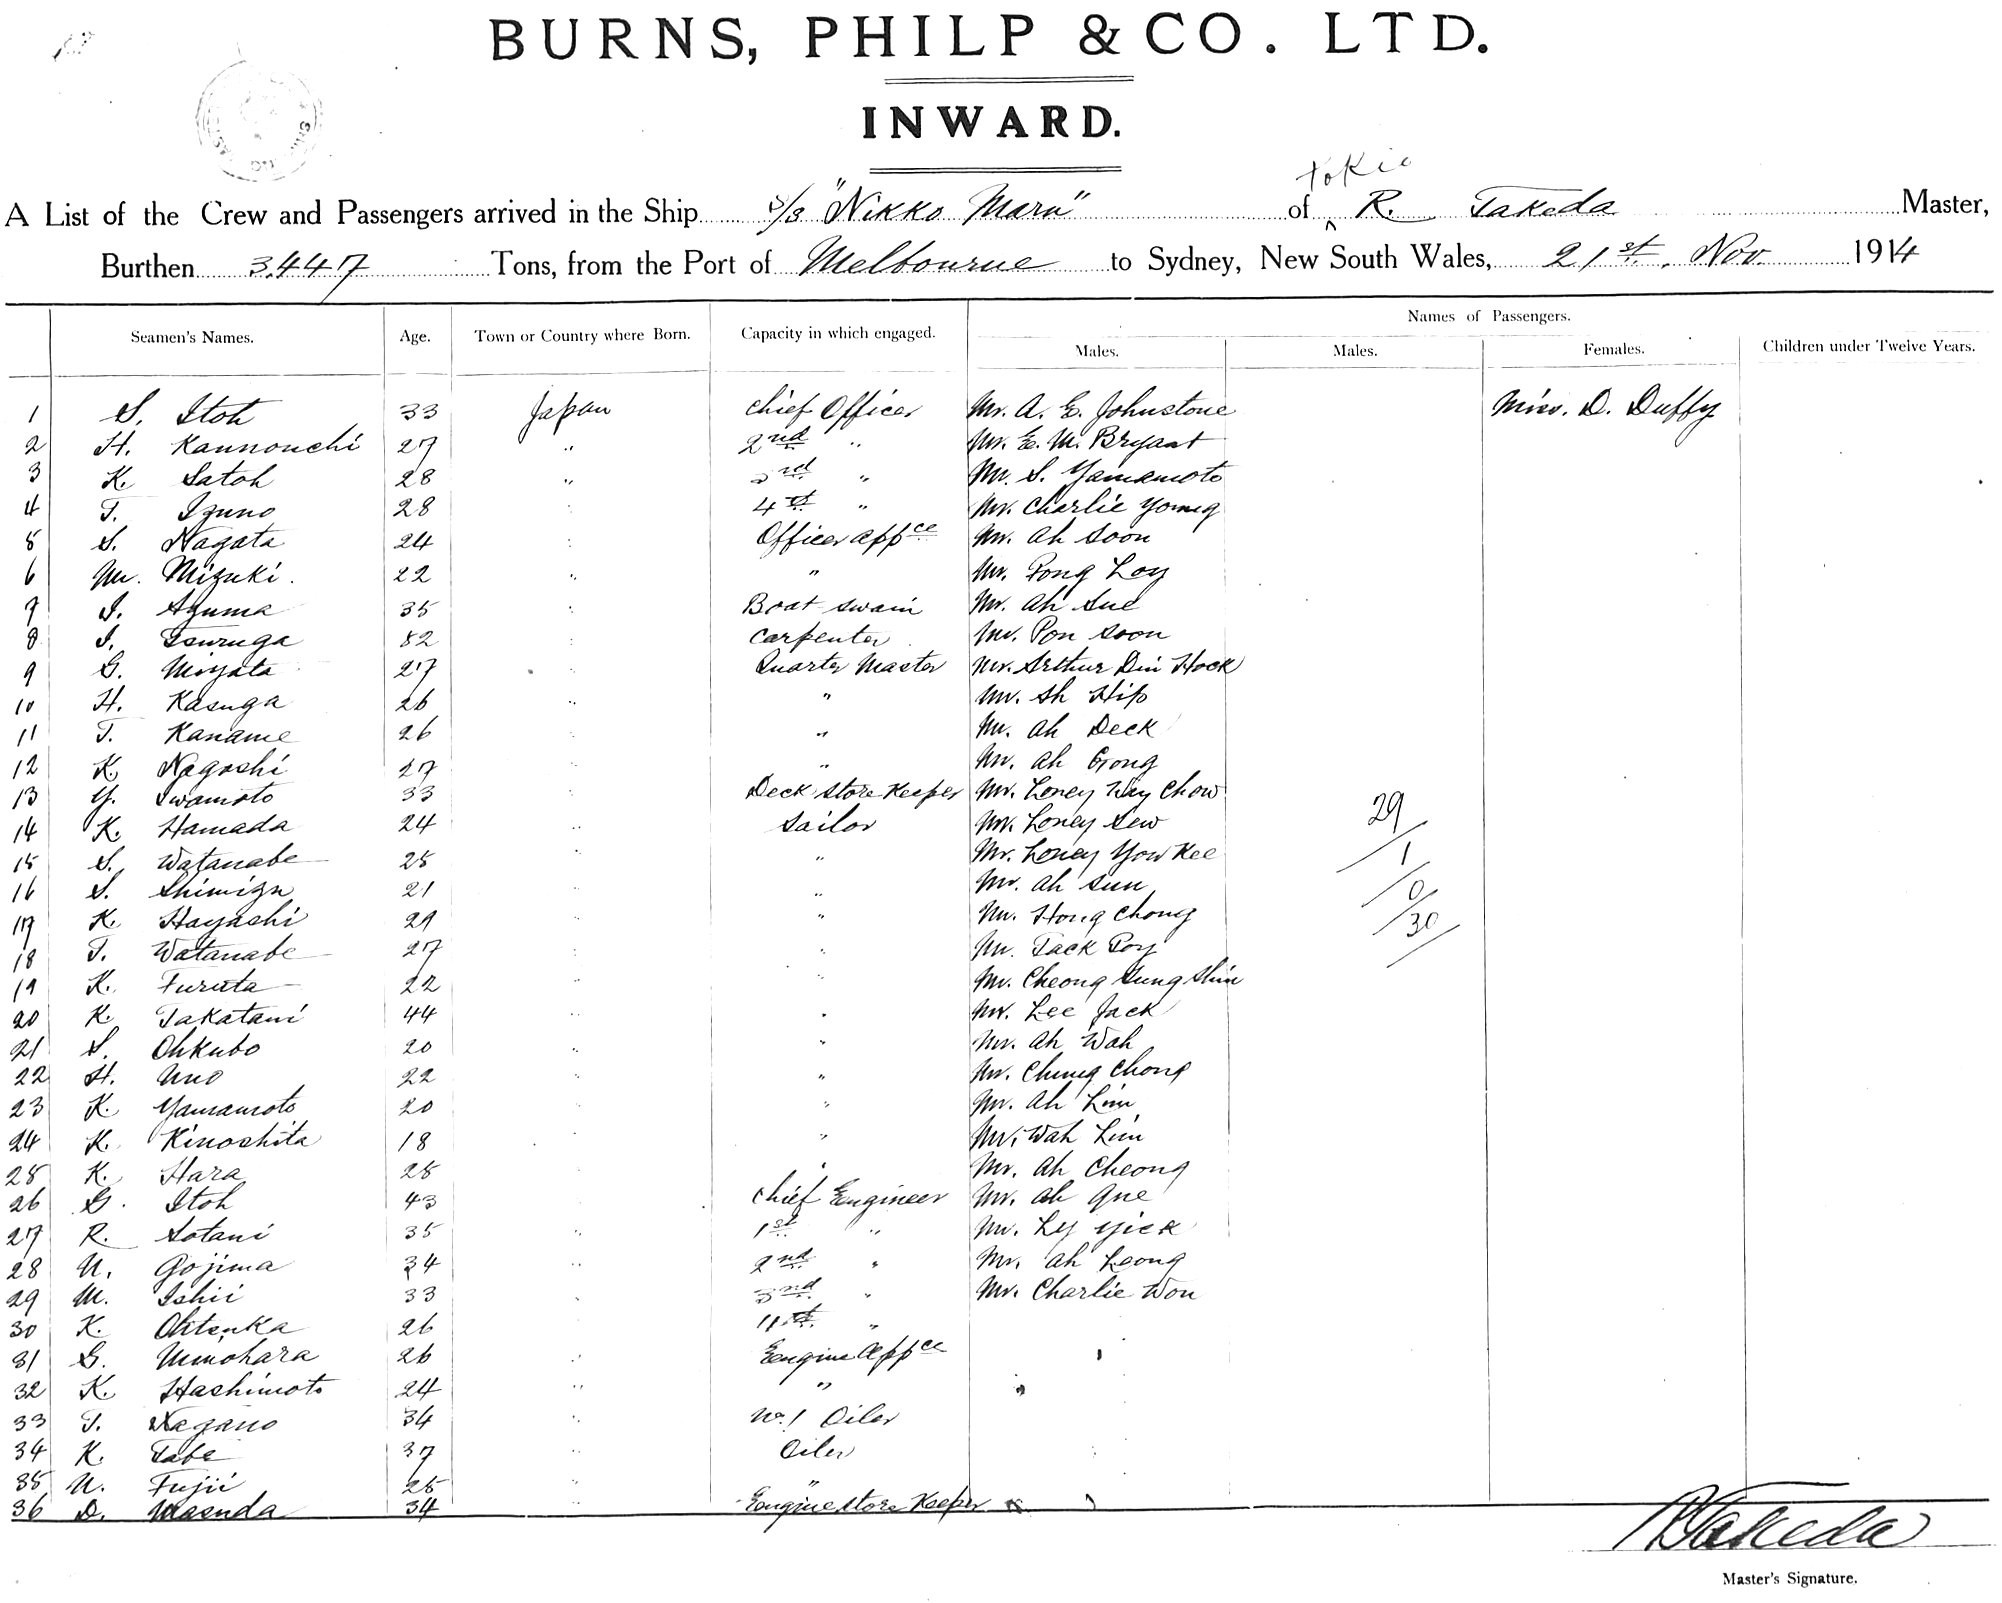 BURNS, PHILP & CO. LTD.
INWARD.
Tokio
A List of the Crew and Passengers arrived in the Ship S/S "Nikko Maru" of R. Takeda Master,
Burthen 3,447 Tons, from the Port of Melbourne to Sydney, New South Wales, 21st. Nov. 1914
Names of Passengers.
Seamen's Names. Age. Town or Country where Born. Capacity in which engaged. Males. Males. Females. Children under Twelve Years.
1 S. Itoh 33 Japan Chief Officer Mr. A. E. Johnstone Miss. D. Duffy
2 H. Kannouchi 27 " 2nd " Mr. E. M. Bryant
3 K. Satoh 28 " 3rd " Mr. S. Yamamoto
4 T. Izuno 28 " 4th " Mr. Charlie Young
5 S. Nagata 24 " Officer appce Mr. Ah Soon
6 M. Mizuki. 22 " " Mr. Pong Loy
7 I. Azuma 35 " Boat swain Mr. Ah Sue
8 I. Tsuruga 52 " Carpenter Mr. Pon Soon
9 G. Miyata 27 " Quarter Master Mr. Arthur Din Hock
10 H. Kasuga 26 " " Mr. Ah Hip
11 T. Kaname 26 " " Mr. Ah Deck
12 K. Nagoshi 27 " " Mr. Ah Gong
13 Y. Iwamoto 33 " Deck Store Keeper Mr. Loney Way Chow
14 K. Hamada 24 " Sailor Mr. Loney Sew 29
15 S. Watanabe 25 " " Mr. Loney Yow Kee 1
16 S. Shimizu 21 " " Mr. Ah Sun 0
17 K. Hayashi 29 " " Mr. Hong Chong 30
18 T. Watanabe 27 " " Mr. Tack Poy
19 K. Furuta 22 " " Mr. Cheong Sung Shin
20 K. Takatani 44 " " Mr. Lee Jack
21 S. Ohkubo 20 " " Mr. Ah Wah
22 H. Uno 22 " " Mr. Chung Chong
23 K. Yamamoto 20 " " Mr. Ah Lim
24 K. Kinoshita 18 " " Mr. Wah Lim
25 K. Hara 25 " " Mr. Ah Cheong
26 G. Itoh 43 " Chief Engineer Mr. Ah Que
27 R. Sotani 35 " 1st " Mr. Ly Yick
28 U. Gojima 34 " 2nd " Mr. Ah Leong
29 M. Ishii 33 " 3rd " Mr. Charlie Won
30 K. Ohtsuka 26 " 4th "
31 G. Minohara 26 " Engine Appce
32 K. Hashimoto 24 " "
33 T. Nagano 34 " No. 1 Oiler
34 K. Tabe 37 " Oiler
35 U. Fujii 25 " "
36 D. Masuda 34 " Engine Store Keeper
R Takeda
Master's Signature.